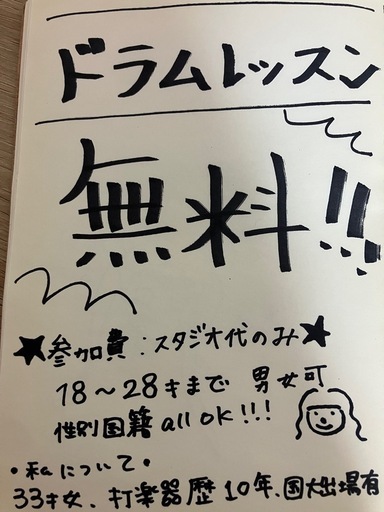 ドラムレッスン
無料!!
★参加費:スタジオ代のみ★
18〜28才まで 男女可
性別国籍 all OK!!!
・私について・
33才女、打楽器歴10年、国大出場有